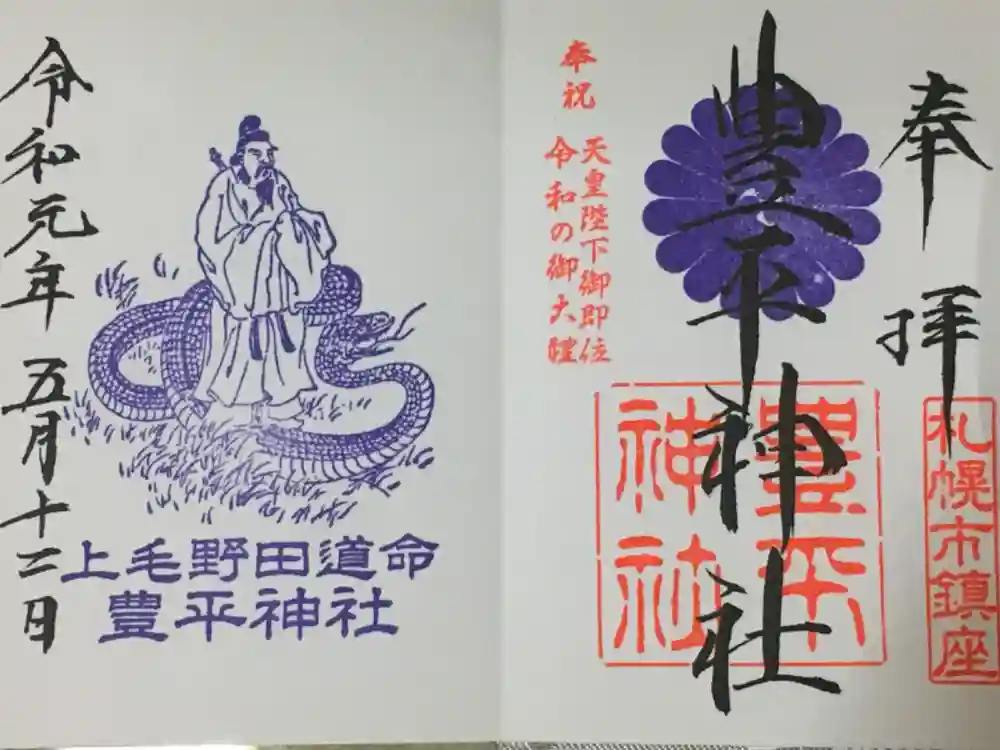 奉拝
札幌市鎮座
豊平神社
豊平神社
奉祝
天皇陛下御即位
令和の御大禮
令和元年 五月十二日
上毛野田道命
豊平神社